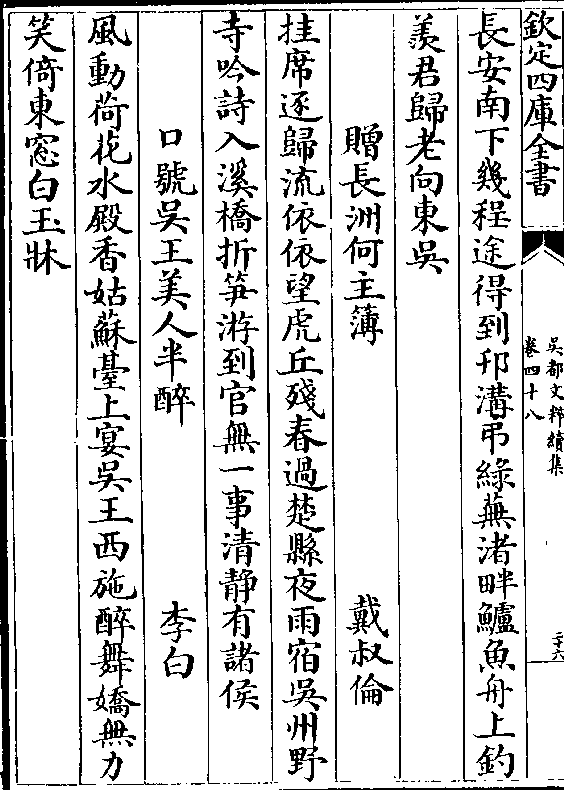 欽定四庫全書
吳都文粹續集
卷四十八
二十六
長安南下幾程途得到邗溝弔綠蕪渚畔鱸魚舟上釣
羨君歸老向東吳
贈長洲何主簿　戴叔倫
挂席逐歸流依依望虎丘殘春過楚縣夜雨宿吳州野
寺吟詩入溪橋折笋游到官無一事清靜有諸侯
口號吳王美人半醉　李白
風動荷花水殿香姑蘇臺上宴吳王西施醉舞嬌無力
笑倚東窓白玉牀